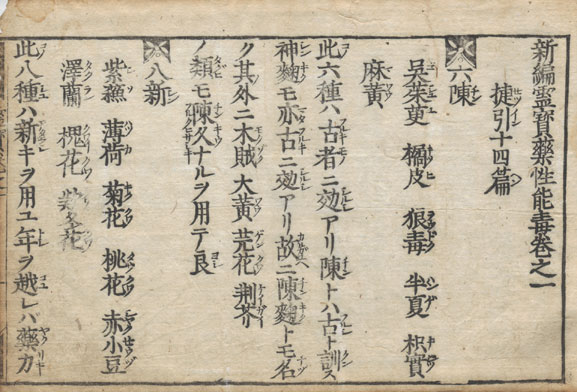 新編靈寶藥性能毒卷之一
捷引十四篇
六陳
吳茱萸 橘皮 狼毒 半夏 枳實
麻黄
此六種ハ古者ニ効アリ陳トハ古ト訓ス
神麴モ亦古ニ効アリ故ニ陳麴トモ名
ク其外ニ木賊 大黄 芫花 荆芥
ノ類モ陳久ナルヲ用テ良
八新
紫蘓 薄荷 菊花 桃花 赤小豆
澤蘭 槐花 花
此八種ハ新キヲ用ユ年ヲ越レハ藥力